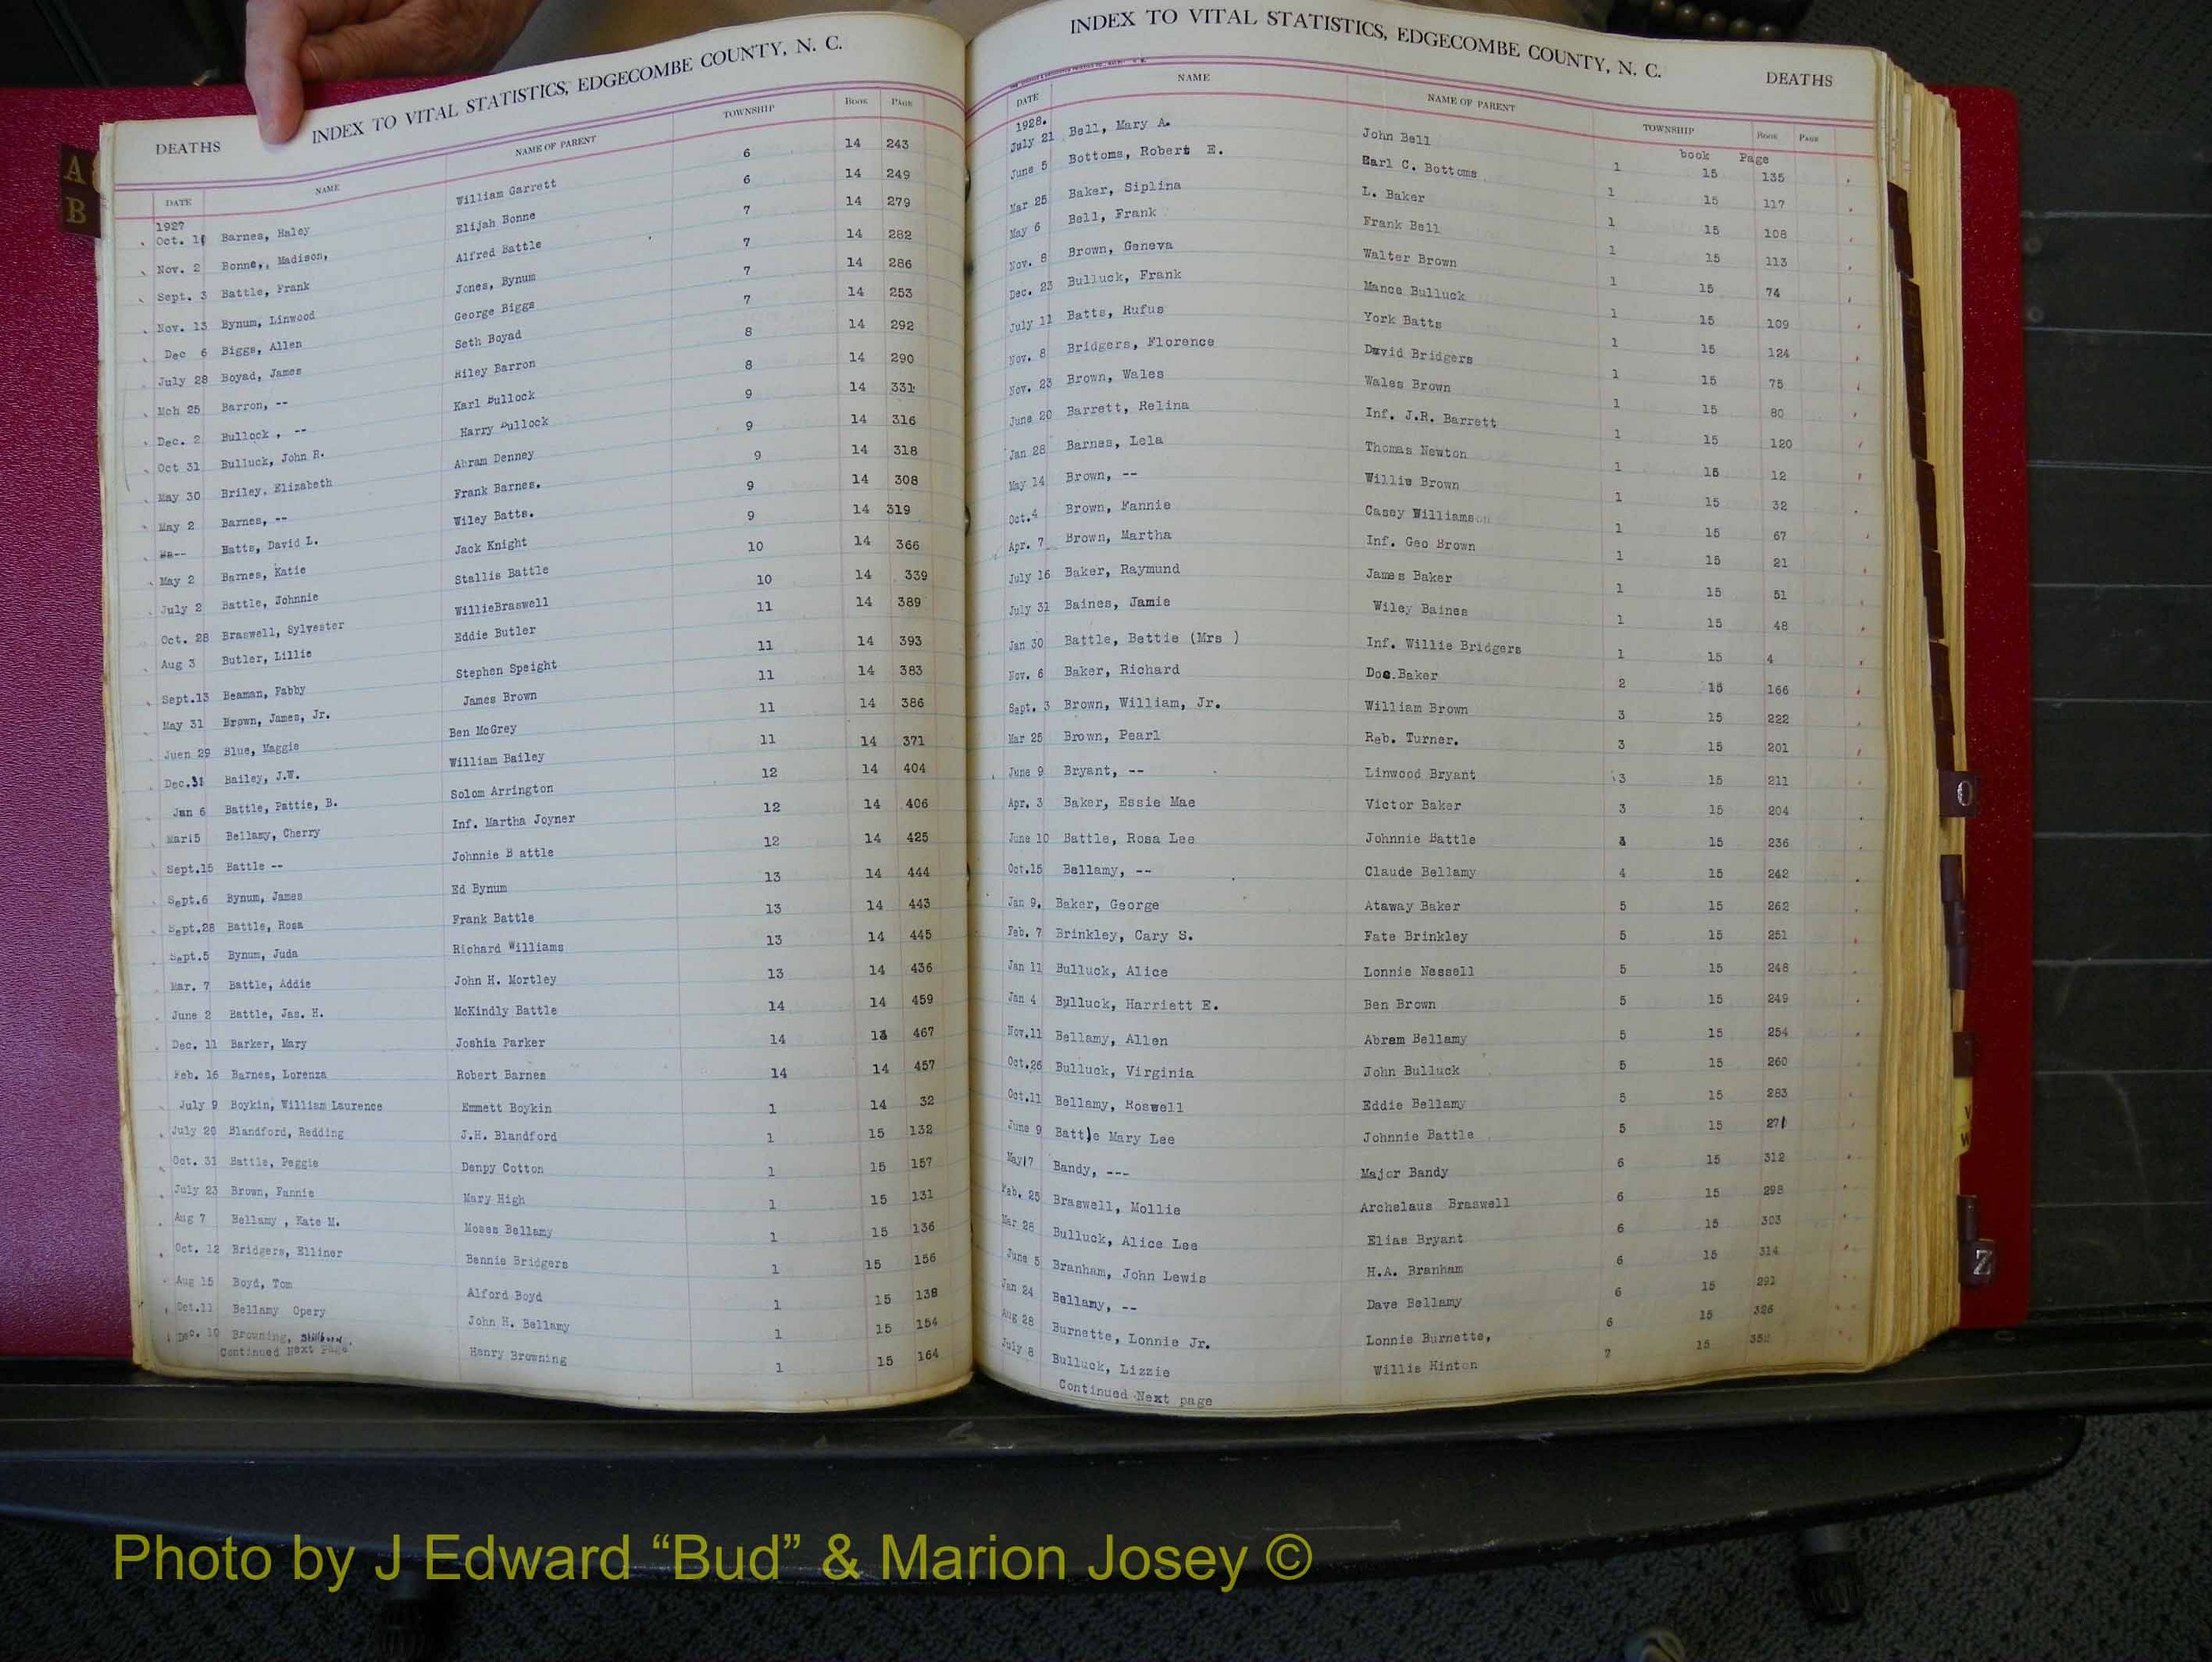 INDEX TO VITAL STATISTICS, EDGECOMBE COUNTY, N. C.
DEATHS
DATE NAME NAME OF PARENT TOWNSHIP BOOK PAGE
1927
Oct. Barnes, Haley William Garrett 6 14 243
Nov. 2 Bonne,, Madison, Elijah Bonne 6 14 249
Sept. 3 Battle, Frank Alfred Battle 7 14 279
Nov. 13 Bynum, Linwood Jones, Bynum 7 14 282
Dec 6 Biggs, Allen George Biggs 7 14 286
July 28 Boyad, James Seth Boyad 7 14 253
Mch 25 Barron, -- Riley Barron 8 14 292
Dec. 2 Bullock , -- Karl Bullock 8 14 290
Oct 31 Bulluck, John R. Harry Bullock 9 14 331
May 30 Briley, Elizabeth Abram Denney 9 14 316
May 2 Barnes, -- Frank Barnes. 9 14 318
Batts, David L. Wiley Batts. 9 14 308
May 2 Barnes, Katie Jack Knight 9 14 319
July 2 Battle, Johnnie Stallis Battle 10 14 366
Oct. 28 Braswell, Sylvester WillieBraswell 10 14 339
Aug 3 Butler, Lillie Eddie Butler 11 14 389
Sept.13 Beaman, Fabby Stephen Speight 11 14 393
May 31 Brown, James, Jr. James Brown 11 14 383
Juen 29 Blue, Maggie Ben McGrey 11 14 386
Dec.31 Bailey, J.W. William Bailey 11 14 371
Jan 6 Battle, Pattie, B. Solom Arrington 12 14 404
Mar15 Bellamy, Cherry Inf. Martha Joyner 12 14 406
Sept.15 Battle -- Johnnie B attle 12 14 425
Sept.6 Bynum, James Ed Bynum 13 14 444
Sept.28 Battle, Rosa Frank Battle 13 14 443
Sept.5 Bynum, Juda Richard Williams 13 14 445
Mar. 7 Battle, Addie John H. Mortley 13 14 436
June 2 Battle, Jas. H. McKindly Battle 14 14 459
Dec. 11 Barker, Mary Joshia Parker 14 14 467
Feb. 16 Barnes, Lorenza Robert Barnes 14 14 457
July 9 Boykin, William Laurence Emmett Boykin 1 14 32
July 20 Blandford, Redding J.H. Blandford 1 15 132
Oct. 31 Battle, Peggie Denpy Cotton 1 15 157
July 23 Brown, Fannie Mary High 1 15 131
Aug 7 Bellamy , Kate M. Moses Bellamy 1 15 136
Oct. 12 Bridgers, Elliner Bennie Bridgers 1 15 156
Aug 15 Boyd, Tom Alford Boyd 1 15 138
Oct.11 Bellamy Opery John H. Bellamy 1 15 154
Dec. 10 Browning, Stillborn. Henry Browning 1 15 164
Continued Next Page
INDEX TO VITAL STATISTICS, EDGECOMBE COUNTY, N. C.
DEATHS
DATE NAME NAME OF PARENT TOWNSHIP BOOK PAGE
1928. book Page
July 21 Bell, Mary A. John Bell 1 15 135
June 5 Bottoms, Robert E. Earl C. Bottoms 1 15 117
Mar 25 Baker, Siplina L. Baker 1 15 108
May 6 Bell, Frank Frank Bell 1 15 113
Nov. 8 Brown, Geneva Walter Brown 1 15 74
Dec. 23 Bulluck, Frank Mance Bulluck 1 15 109
July 11 Batts, Rufus York Batts 1 15 124
Nov. 8 Bridgers, Florence David Bridgers 1 15 75
Nov. 23 Brown, Wales Wales Brown 1 15 80
June 20 Barrett, Relina Inf. J.R. Barrett 1 15 120
Jan 28 Barnes, Lela Thomas Newton 1 15 12
May 14 Brown, -- Willis Brown 1 15 32
Oct.4 Brown, Fannie Casey Williamson 1 15 67
Apr. 7 Brown, Martha Inf. Geo Brown 1 15 21
July 16 Baker, Raymund James Baker 1 15 51
July 31 Baines, Jamie Wiley Baines 1 15 48
Jan 30 Battle, Bettie (Mrs ) Inf. Willie Bridgers 1 15 4
Nov. 6 Baker, Richard Doc.Baker 2 15 166
Sept. 3 Brown, William, Jr. William Brown 3 15 222
Mar 25 Brown, Pearl Reb. Turner. 3 15 201
June 9 Bryant, -- Linwood Bryant 3 15 211
Apr. 3 Baker, Essie Mae Victor Baker 3 15 204
June 10 Battle, Rosa Lee Johnnie Battle 4 15 236
Oct.15 Bellamy, -- Claude Bellamy 4 15 242
Jan 9. Baker, George Ataway Baker 5 15 262
Feb. 7 Brinkley, Cary S. Fate Brinkley 5 15 251
Jan 11 Bulluck, Alice Lonnie Nessell 5 15 248
Jan 4 Bulluck, Harriett E. Ben Brown 5 15 249
Nov.11 Bellamy, Allen Abram Bellamy 5 15 254
Oct.26 Bulluck, Virginia John Bulluck 5 15 260
Oct.11 Bellamy, Roswell Eddie Bellamy 5 15 283
June 9 Battle Mary Lee Johnnie Battle 5 15 271
May17 Bandy, --- Major Bandy 6 15 312
Feb. 25 Braswell, Mollie Archelaus Braswell 6 15 298
Mar 28 Bulluck, Alice Lee Elias Bryant 6 15 303
June 5 Branham, John Lewis H.A. Branham 6 15 314
Jan 24 Bellamy, -- Dave Bellamy 6 15 291
Aug 28 Burnette, Lonnie Jr. Lonnie Burnette, 6 15 326
July 8 Bulluck, Lizzie Willis Hinton 7 15
Continued Next page
A
B
O
Z
V
W
Photo by J Edward “Bud” & Marion Josey ©